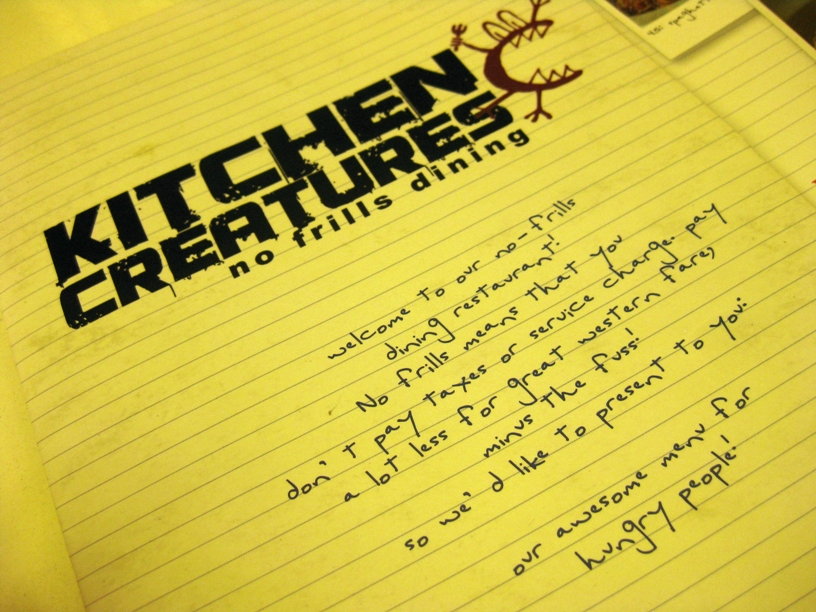 KITCHEN
CREATURES
no frills dining
welcome to our no-frills
dining restaurant!
No frills means that you
don't pay taxes or service charge. pay
a lot less for great western fare,
minus the fuss!
so we'd like to present to you:
our awesome menu for
hungry people!